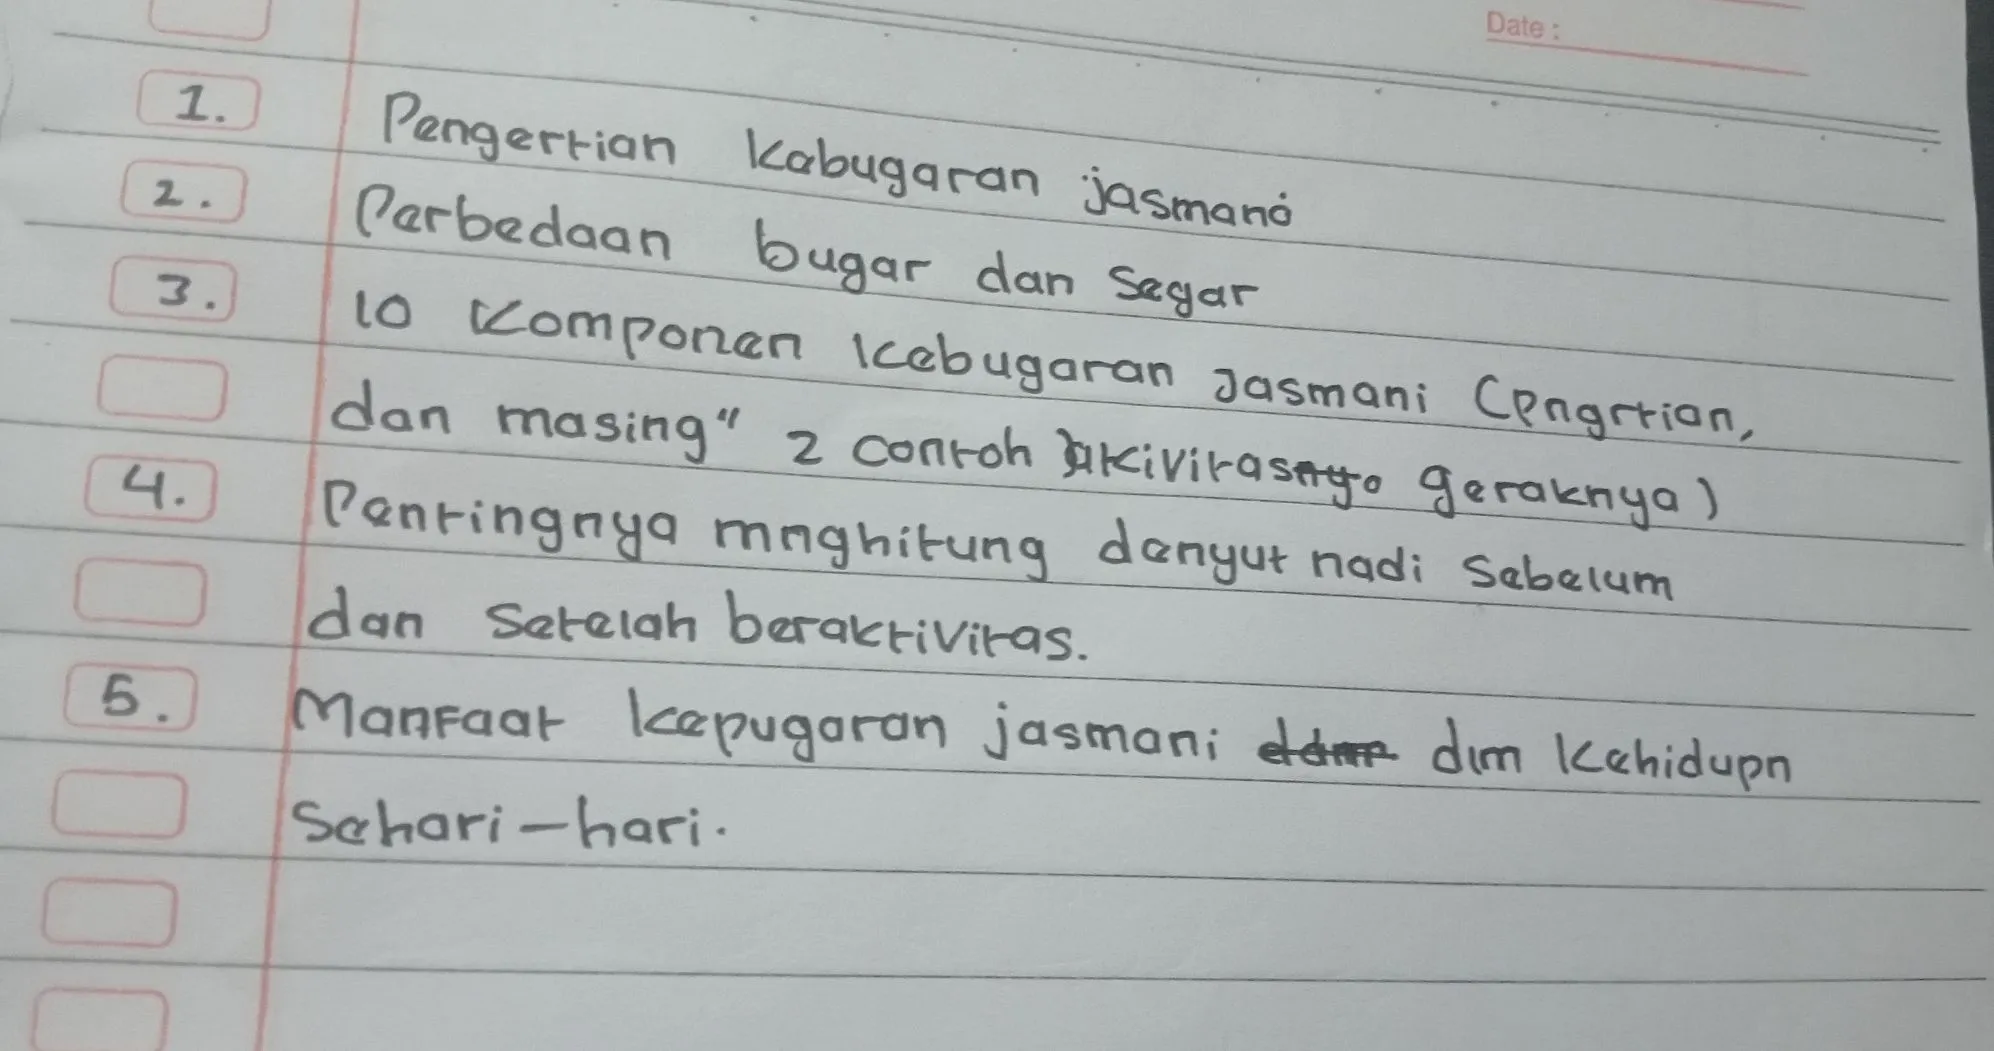 Date :
1. Pengertian kebugaran jasmani
2. Perbedaan bugar dan Segar
3. 10 Komponen kebugaran Jasmani (pngrtian,
dan masing" 2 contoh akivitas geraknya)
4. Pentingnya mnghitung denyut nadi Sebelum
dan Setelah beraktivitas.
5. Manfaat kepugaran jasmani dlm kehidupn
Sehari-hari.